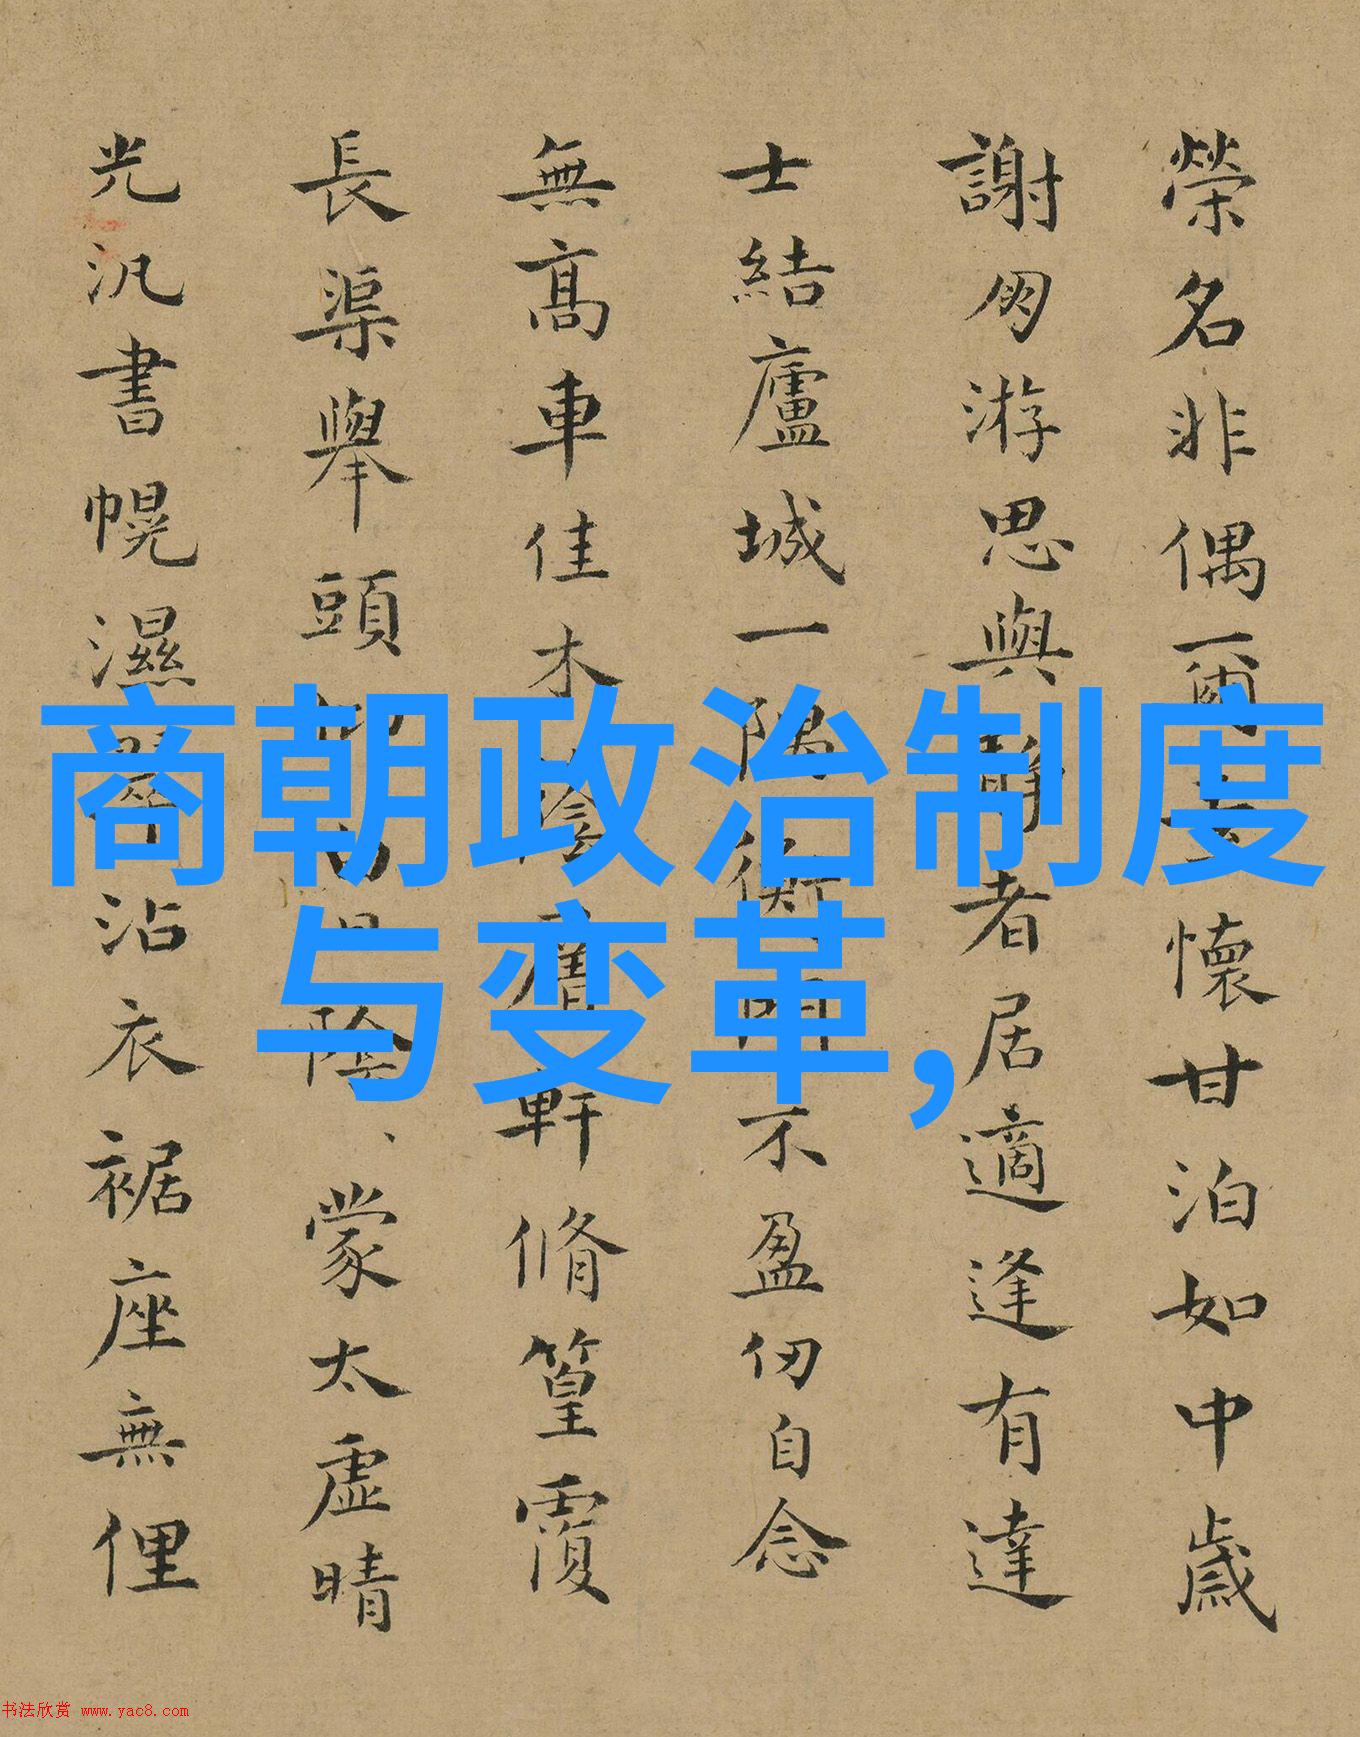 榮名非偶爾懷甘泊如中歲
謝勿游思與靜者居適逢有達
士結廬城一隅衡門不盈仞自念
無高車佳木陰舊軒脩篁覆
長渠舉頭陰蒙太虛晴
光汎書幌濕琴沾衣裾座無俚
商朝政治制度
与变革,
书法欣赏 www.yac8.com